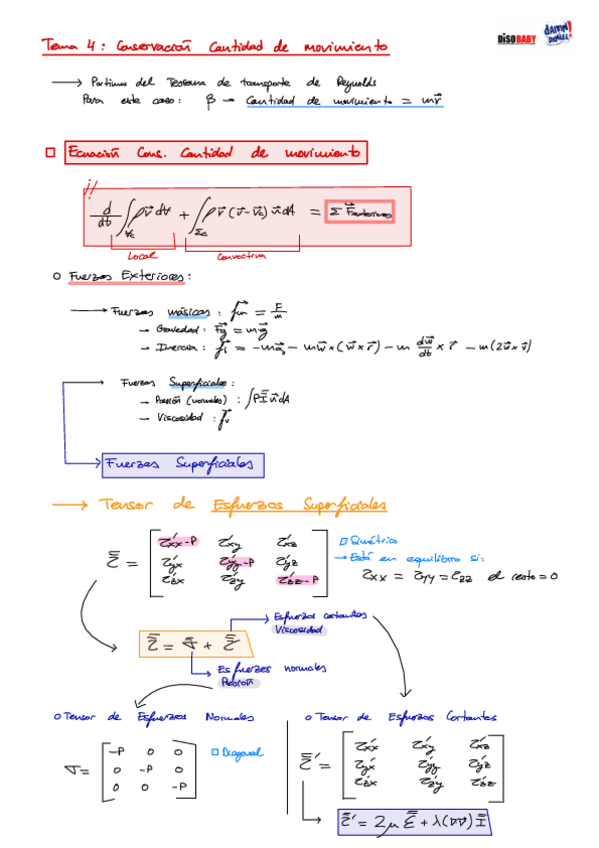 Tema 4: Conservación Cantidad de movimiento
DISOBABY
DAMN DANIEL!
→ Partimos del Teorema de transporte de Reynolds
Para este caso: β → Cantidad de movimiento = mv⃗
□ Ecuación Cons. Cantidad de movimiento
¡!
d/dt ∫_Vc ρv⃗ dV + ∫_Σc ρv⃗ (v⃗-v⃗c) n⃗ dA = Σ F⃗exteriores
Local Convectiva
○ Fuerzas Exteriores:
→ Fuerzas másicas: f⃗m = F/m
→ Gravedad: F⃗g = mg⃗
→ Inercia: f⃗i = -ma⃗0 - mw⃗×(w⃗×r⃗) - m dw⃗/dt × r⃗ - m(2w⃗×v⃗)
→ Fuerzas Superficiales:
→ Presión (normales): ∫PI n⃗ dA
→ Viscosidad: f⃗v
Fuerzas Superficiales
→ Tensor de Esfuerzos Superficiales
τ = [τ'xx-P τ'xy τ'xz
τ'yx τ'yy-P τ'yz
τ'zx τ'zy τ'zz-P]
□ Simétrico
→ Está en equilibrio si:
τxx = τyy = τzz el resto = 0
Esfuerzos cortantes
Viscosidad
τ = σ + τ'
Esfuerzos normales
Presión
○ Tensor de Esfuerzos Normales
σ = [-P 0 0
0 -P 0
0 0 -P]
□ Diagonal
○ Tensor de Esfuerzos Cortantes
τ' = [τ'xx τ'xy τ'xz
τ'yx τ'yy τ'yz
τ'zx τ'zy τ'zz]
τ' = 2μ ε + λ(∇v⃗) I